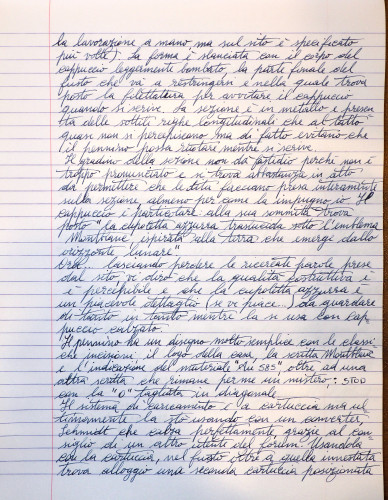 la lavorazione a mano ma sul sito è specificato
più volte). La forma è slanciata con il corpo del
cappuccio leggermente bombato, la parte finale del
fusto che va a restringersi e nella quale trova
posto la filettatura per avvitare il cappuccio
quando si scrive. La sezione è in metallo e presen-
ta delle sottili righe longitudinali che al tatto
quasi non si percepiscono ma di fatto evitano che
il pennino possa ruotare mentre si scrive.
Il gradino della sezione non dà fastidio perché non è
troppo pronunciato e si trova abbastanza in alto
da permettere che le dita facciano presa interamente
sulla sezione, almeno per come la impugno io. Il
cappuccio è particolare alla sua sommità trova
posto "la cupoletta azzurra traslucida sotto l'emblema
Montblanc, ispirata alla terra che emerge dallo
orizzonte lunare"
Ora... lasciando perdere le ricercate parole prese
dal sito vi dico che la qualità costruttiva è
è percepibile e che la cupoletta azzurra è
un piacevole dettaglio (se vi piace...) da guardare
di tanto in tanto mentre la si usa con cap-
puccio calzato.
Il pennino ha un disegno molto semplice con le classi-
che incisioni, il logo della casa, la scritta Montblanc
e l'indicazione del materiale "Au 585", oltre ad una
altra scritta che rimane per me un mistero: STOD
con la "O" tagliata in diagonale
Il sistema di caricamento è a cartuccia ma ul-
timamente la sto usando con un converter
Schmidt che calza perfettamente grazie al con-
siglio di un altro utente del forum. Usandola
con la cartuccia, nel fusto oltre a quella innestata
trova alloggio una seconda cartuccia posizionata